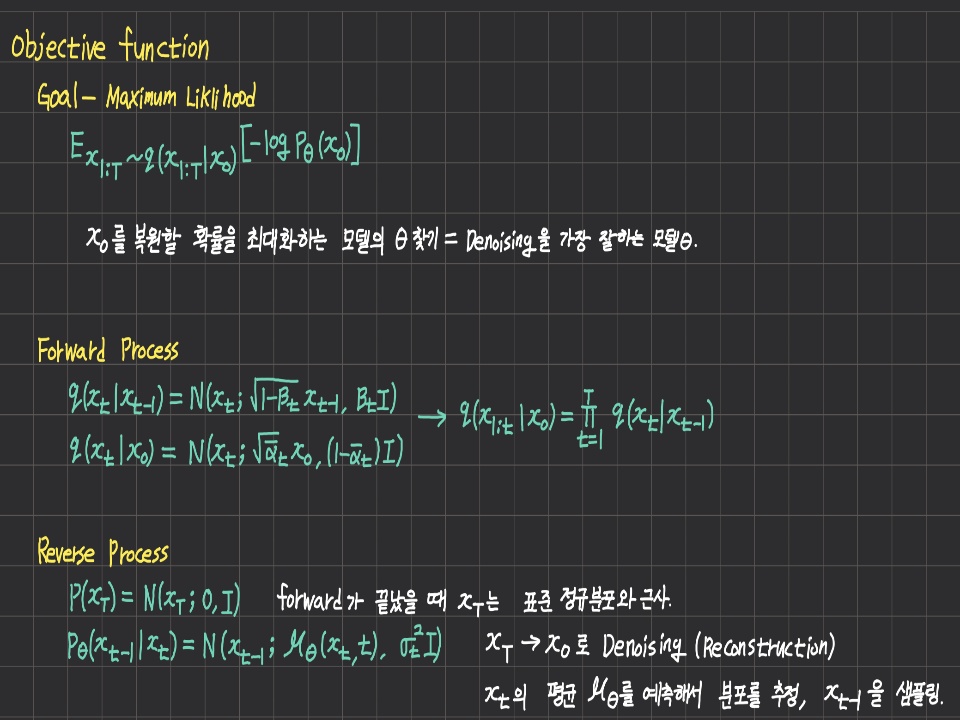 Objective function
Goal – Maximum Liklihood
E_{x_{1:T}~q(x_{1:T}|x_0)}[-log P_θ(x_0)]
x_0를 복원할 확률을 최대화하는 모델의 θ 찾기 = Denoising을 가장 잘하는 모델 θ.
Forward Process
q(x_t|x_{t-1}) = N(x_t; √(1-β_t) x_{t-1}, β_t I) → q(x_{1:t}|x_0) = ∏_{t=1}^{T} q(x_t|x_{t-1})
q(x_t|x_0) = N(x_t; √ᾱ_t x_0, (1-ᾱ_t)I)
Reverse Process
P(x_T) = N(x_T; 0, I) forward가 끝났을 때 x_T는 표준 정규분포와 근사.
P_θ(x_{t-1}|x_t) = N(x_{t-1}; μ_θ(x_t, t), σ_t^2 I) x_T → x_0로 Denoising (Reconstruction)
x_t의 평균 μ_θ를 예측해서 분포를 추정, x_{t-1}을 샘플링.